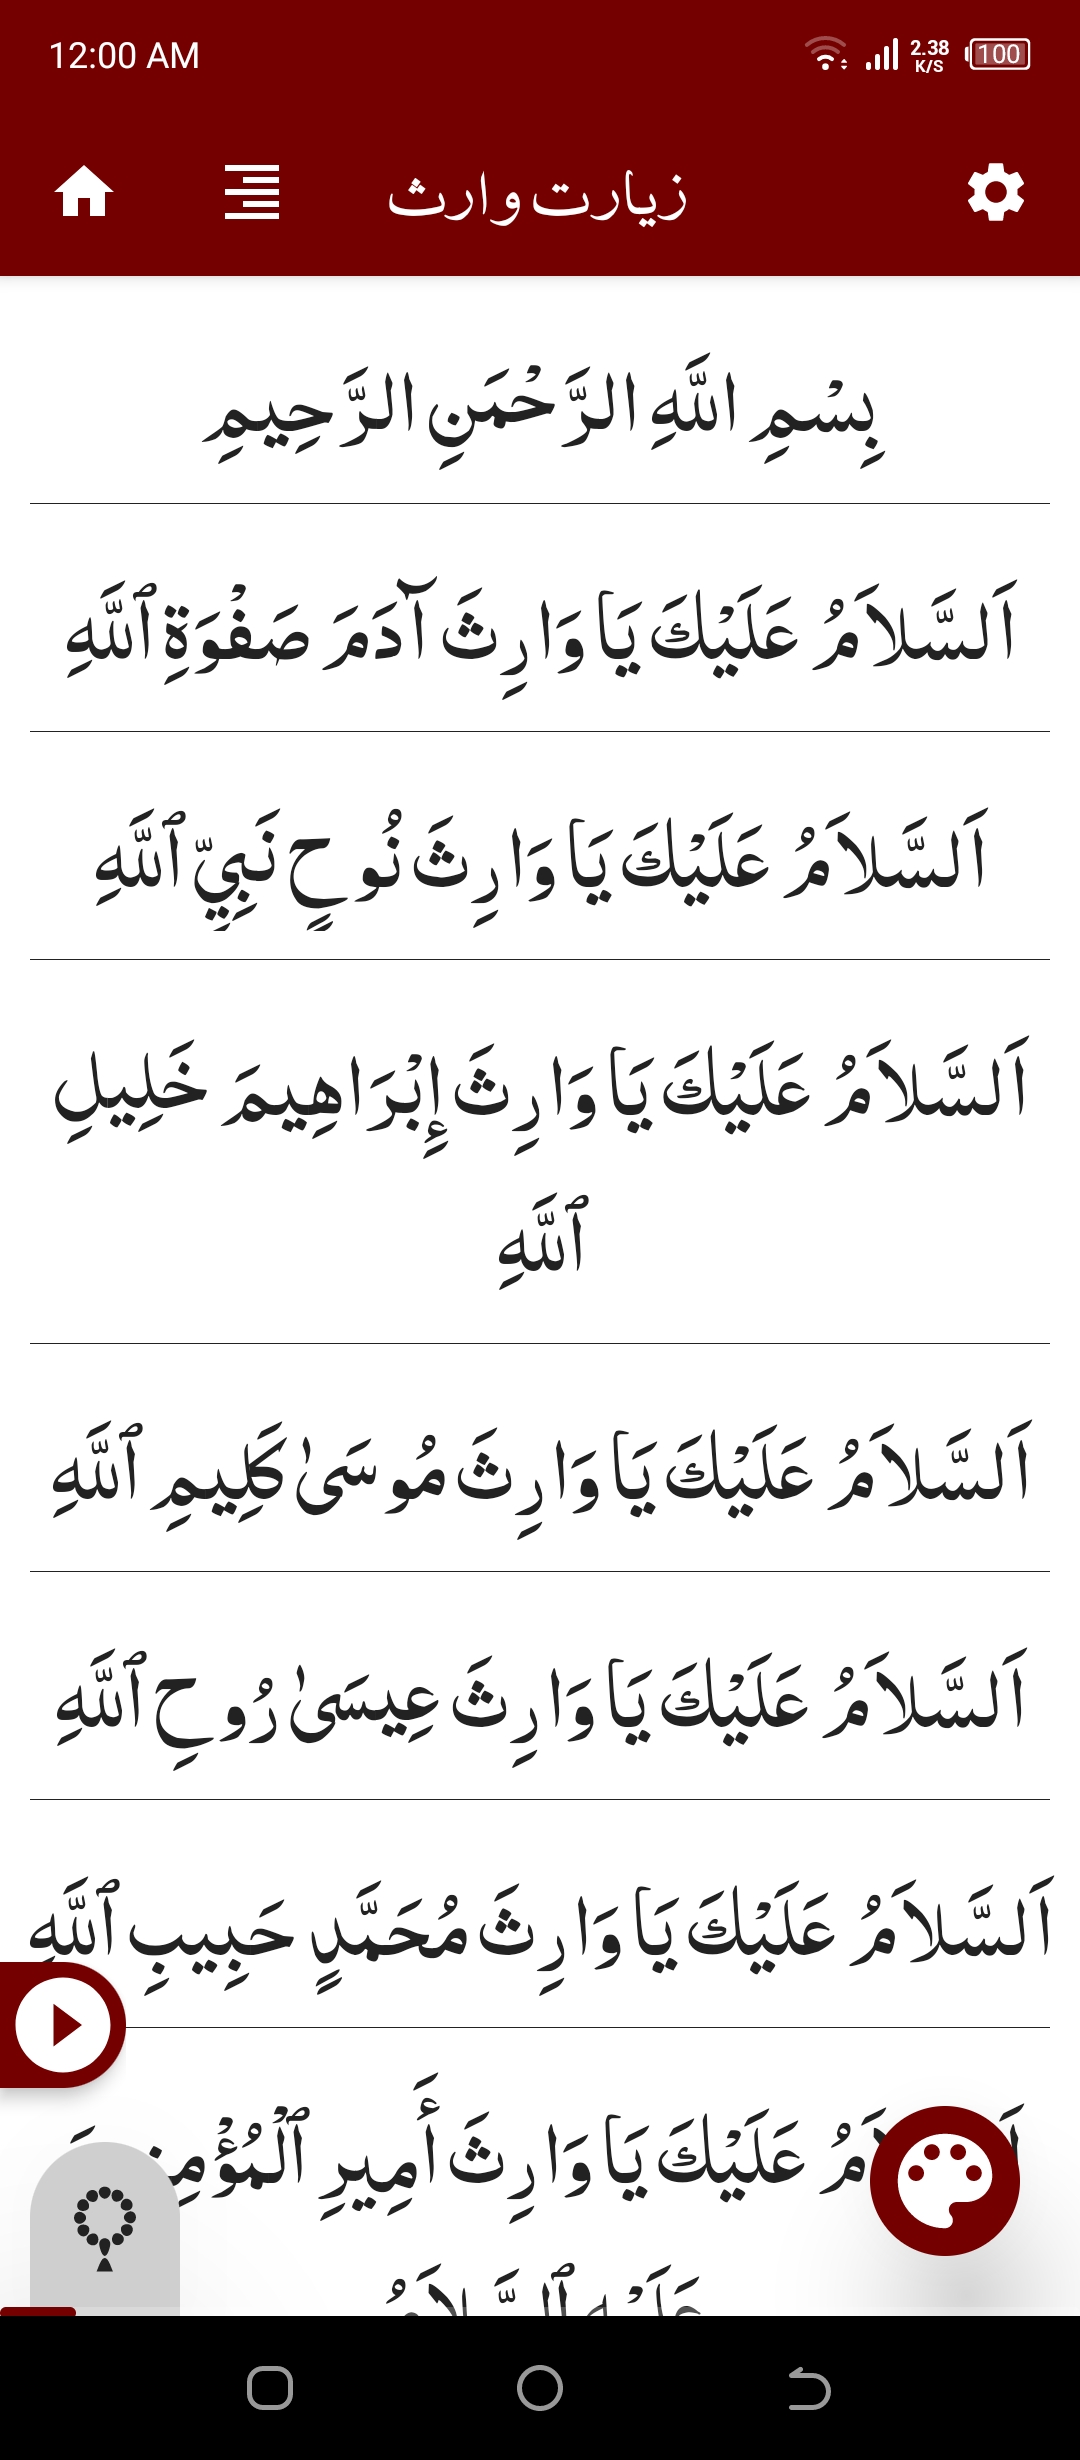 12:00 AM
2.38
K/S
100
زیارت وارث
بِسْمِ اللَّهِ الرَّحْمَنِ الرَّحِيمِ
اَلسَّلاَمُ عَلَيْكَ يَا وَارِثَ آدَمَ صَفْوَةِ ٱللَّهِ
اَلسَّلاَمُ عَلَيْكَ يَا وَارِثَ نُوحٍ نَبِيِّ ٱللَّهِ
اَلسَّلاَمُ عَلَيْكَ يَا وَارِثَ إِبْرَاهِيمَ خَلِيلِ
ٱللَّهِ
اَلسَّلاَمُ عَلَيْكَ يَا وَارِثَ مُوسَىٰ كَلِيمِ ٱللَّهِ
اَلسَّلاَمُ عَلَيْكَ يَا وَارِثَ عِيسَىٰ رُوحِ ٱللَّهِ
اَلسَّلاَمُ عَلَيْكَ يَا وَارِثَ مُحَمَّدٍ حَبِيبِ ٱللَّهِ
عَلَيْكَ يَا وَارِثَ أَمِيرِ